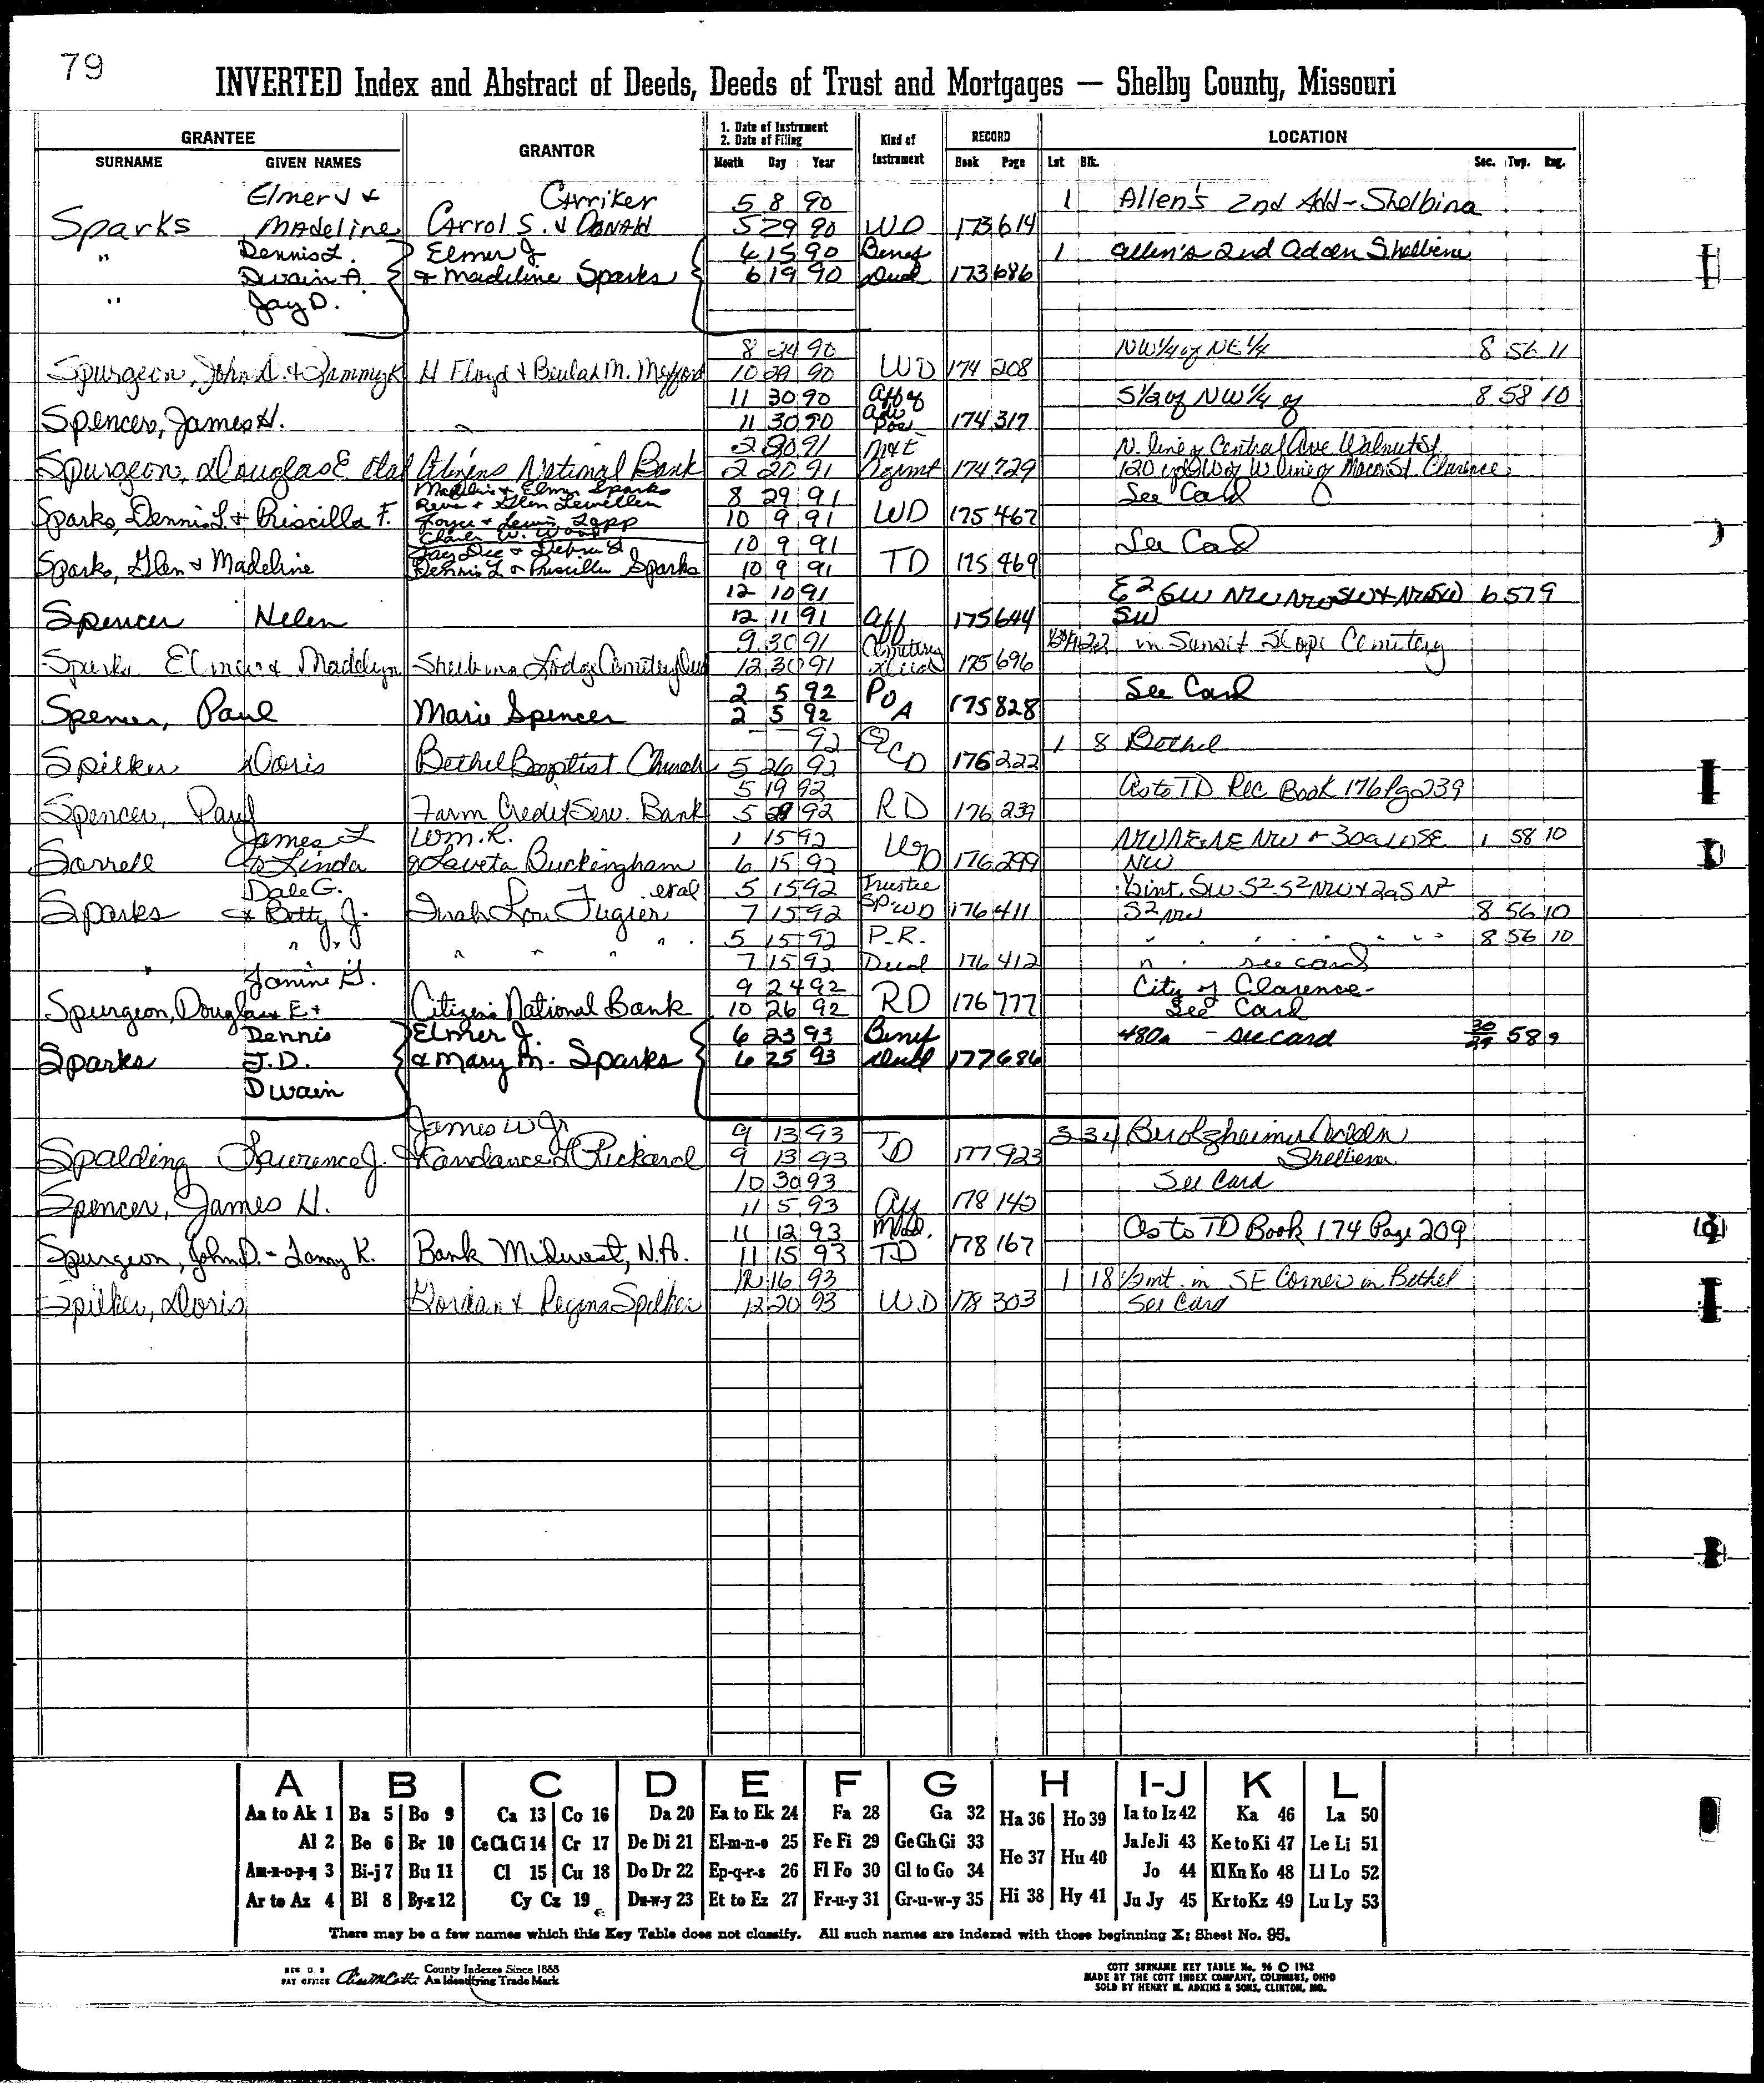 79
INVERTED Index and Abstract of Deeds, Deeds of Trust and Mortgages — Shelby County, Missouri
GRANTEE
SURNAME GIVEN NAMES
GRANTOR
1. Date of Instrument
2. Date of Filing
Month Day Year
Kind of Instrument
RECORD
Book Page
LOCATION
Lot Blk. Sec. Twp. Rng.
Elmer J & Carriker 5 8 90 1 Allen's 2nd Add - Shelbina
Sparks Madeline Carrol S. & Donald 5 29 90 WD 173 614
" Dennis L. Elmer J. 6 15 90 Benef 1 Allen's 2nd Addn Shelbina
Dwain A. & Madeline Sparks 6 19 90 Deed 173 686
" Jay D.
8 24 90 NW¼ of NE¼ 8 56 11
Spurgeon, John D. & Tammy K H Floyd & Beulah M. Mefford 10 29 90 WD 174 208
11 30 90 Aff of S½ of NW¼ of 8 58 10
Spencer, James H. 11 30 90 Adv Pos 174 317
2 20 91 N. line of Central Ave Walnut St.
Spurgeon, Douglas E etal Citizens National Bank 2 20 91 Agrmt 174 729 120 W of W line of Macon St. Clarence
Madeline & Elmer Sparks 8 29 91 See Card
Reva & Glen Lewellen
Sparks, Dennis L. & Priscilla F. Joyce & Lewis Lapp 10 9 91 WD 175 467
Charles W. Wood
Jay Dee & Debra 10 9 91 See Card
Sparks, Glen & Madeline Dennis L & Priscilla Sparks 10 9 91 TD 175 469
12 10 91 E² SW NW NW SW & NW SW 6 57 9
Spencer Helen 12 11 91 Aff 175 644 SW
9 30 91 Cemetery in Sunset Slope Cemetery
Sparks Elmer & Madelyn Shelbina Lodge Cemetery 12 30 91 Deed 175 696
2 5 92 PO See Card
Spencer, Paul Marie Spencer 2 5 92 A 175 828
92 QC 1 8 Bethel
Spilker Doris Bethel Baptist Church 5 26 92 D 176 222
5 19 92 As to TD Rec Book 176 Pg 239
Spencer, Paul Farm Credit Serv. Bank 5 28 92 RD 176 239
James L Wm. R. 1 15 92 NW NE NE NW & 30a W SE 1 58 10
Sorrell & Linda & Laveta Buckingham 6 15 92 WD 176 299 NW
Dale G. etal 5 15 92 Trustee ½ int. SW S² S² NW & 2a S N²
Sparks & Betty J. Inah Lou Fugier 7 15 92 SPWD 176 411 S² NW 8 56 10
" " " " " " 5 15 92 P.R. " " " " 8 56 10
7 15 92 Deed 176 412 " " see card
Janine G. 9 24 92 City of Clarence -
Spurgeon, Douglas E & Citizens National Bank 10 26 92 RD 176 777 See Card
Dennis Elmer J. 6 23 93 Benef 480a - see card 30/29 58 9
Sparks J.D. & Mary M. Sparks 6 25 93 Deed 177 686
Dwain
James W Jr 9 13 93 3 34 Berolzheimer Addn
Spalding Lawrence J. & Kandance L Pickard 9 13 93 TD 177 923 Shelbina
10 30 93 See Card
Spencer, James H. 11 5 93 Aff 178 140
11 12 93 Mod. As to TD Book 174 Page 209
Spurgeon, John D. - Tammy K. Bank Midwest, N.A. 11 15 93 TD 178 167
12 16 93 1 18 ½ int. in SE Corner in Bethel
Spilker, Doris Gordan & Regina Spilker 12 20 93 WD 178 303 See Card
A B C D E F G H I-J K L
Aa to Ak 1 Ba 5 Bo 9 Ca 13 Co 16 Da 20 Ea to Ek 24 Fa 28 Ga 32 Ha 36 Ho 39 Ia to Iz 42 Ka 46 La 50
Al 2 Be 6 Br 10 Ce Ch Ci 14 Cr 17 De Di 21 El-m-n-o 25 Fe Fi 29 Ge Gh Gi 33 He 37 Hu 40 Ja Je Ji 43 Ke to Ki 47 Le Li 51
Am-n-o-p-q 3 Bi-j 7 Bu 11 Cl 15 Cu 18 Do Dr 22 Ep-q-r-s 26 Fl Fo 30 Gl to Go 34 Jo 44 Kl Kn Ko 48 Ll Lo 52
Ar to Az 4 Bl 8 By-z 12 Cy Cz 19 Du-w-y 23 Et to Ez 27 Fr-u-y 31 Gr-u-w-y 35 Hi 38 Hy 41 Ju Jy 45 Kr to Kz 49 Lu Ly 53
There may be a few names which this Key Table does not classify. All such names are indexed with those beginning X; Sheet No. 95.
REG. U.S. PAT OFFICE
County Indexes Since 1888
An Identifying Trade Mark
COTT SURNAME KEY TABLE No. 96 © 1962
MADE BY THE COTT INDEX COMPANY, COLUMBUS, OHIO
SOLD BY HENRY M. ADKINS & SONS, CLINTON, MO.